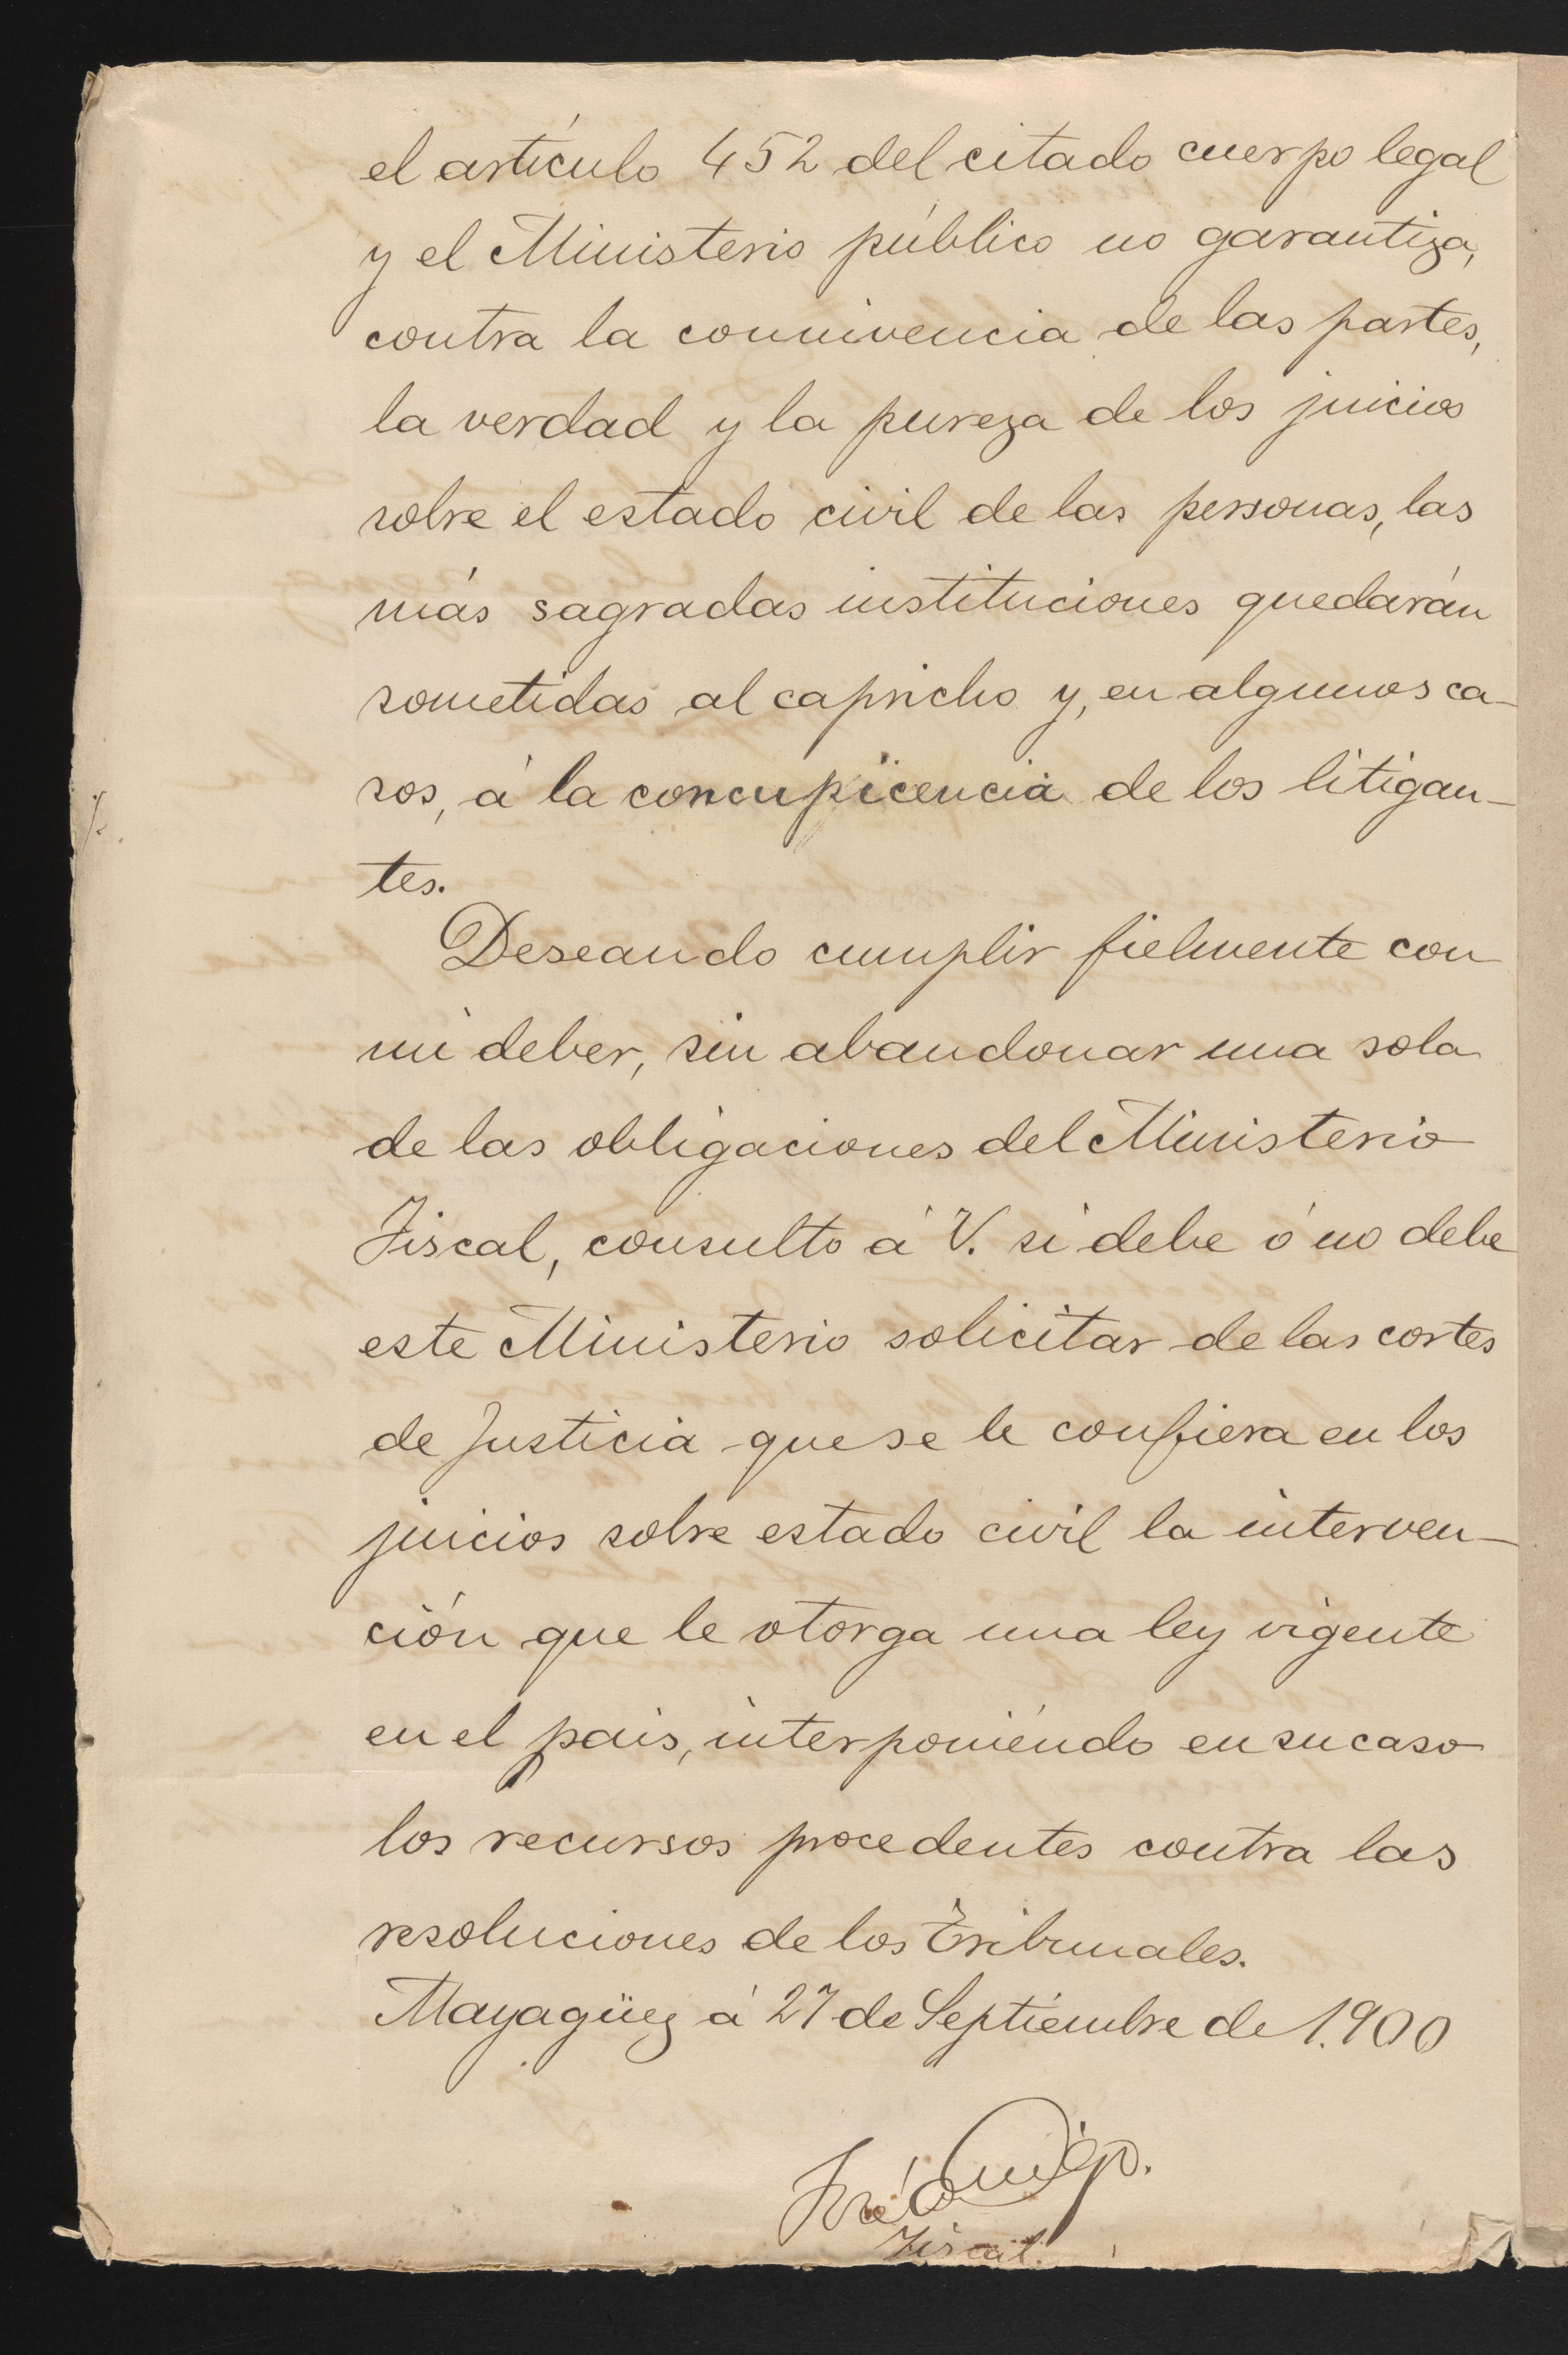 el artículo 452 del citado cuerpo legal
y el Ministerio público no garantiza,
contra la connivencia de las partes,
la verdad y la pureza de los juicios
sobre el estado civil de las personas, las
más sagradas instituciones quedarán
sometidas al capricho y, en algunos ca-
sos, á la concupicencia de los litigan-
tes.
Deseando cumplir fielmente con
mi deber, sin abandonar una sola
de las obligaciones del Ministerio
Fiscal, consulto á V. si debe ó no debe
este Ministerio solicitar de las cortes
de Justicia que se le confiera en los
juicios sobre estado civil la interven-
ción que le otorga una ley vigente
en el pais, interponiéndo en su caso
los recursos procedentes contra las
resoluciones de los Tribunales.
Mayagüez á 27 de Septiembre de 1.900
Fiscal.